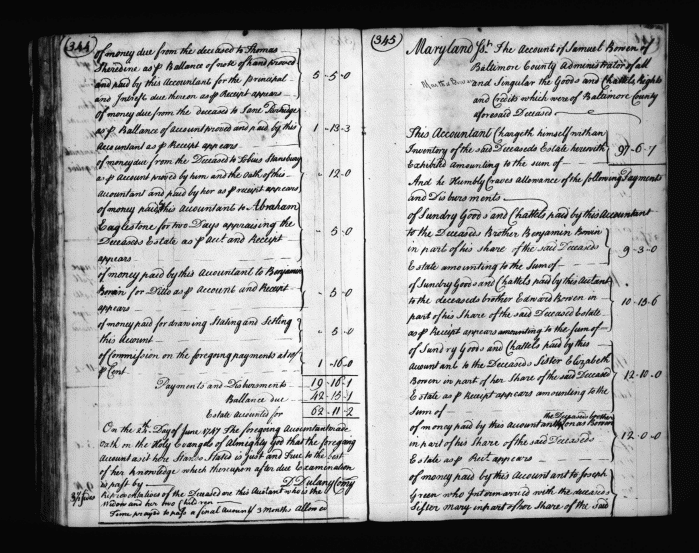 344
of money due from the deceased to Thomas
Sheredine as p Ballance of note of hand proved
and paid by this Accountant for the principal
and Intrest due thereon as p Receipt appears
5-5-0
of money due from the deceased to Lane
as p Ballance of Account proved and paid by this
Accountant as p Receipt appears
1-13-3
of money due from the Deceased to Tobias Stansbury
as p Account proved by him and the Oath of this
Accountant and paid by her as p receipt appears
-12-0
of money paid this Accountant to Abraham
Eaglestone for two Days appraising the
Deceaseds Estate as p Acct and Receipt
appears
-5-0
of money paid by this Accountant to Benjamin
Bowin for Ditto as p Account and Receipt
appears
-5-0
of money paid for drawing Stating and Setling
this Account
-5-0
of Commission on the foregoing payments at
p Cent
1-16-0
Payments and Disbursments 19-16-1
Ballance due 42-15-1
Estate Accounted for 62-11-2
On the 24th Day of June 1747 The foregoing Accountant made
Oath on the Holy Evangels of Almighty God that the foregoing
Account as it here Stands Stated is Just and True to the best
of her knowledge which thereupon after due Examination
is past by D Dulany Comy
Representatives of the Deceased are this Accotant who is the
Widow and her two Children
Time prayed to pass a final Account 3 months Allowed
345
Maryland Sst The Account of Samuel Bowen of
Baltimore County Administrator of all
and Singular the Goods and Chattels, Rights
and Credits which were of Baltimore County
aforesaid Deceased
This Accountant Chargeth himself with an
Inventory of the said Deceaseds Estate herewith
Exhibited Amounting to the sum of
97-6-7
And he Humbly Craves allowance of the following Payments
and Disbursments
of Sundry Goods and Chattels paid by this Accountant
to the Deceaseds Brother Benjamin Bowin
in part of his Share of the said Deceaseds
Estate amounting to the Sum of
9-3-0
of Sundry Goods and Chattels paid by this Acctant
to the deceaseds brother Edward Bowen in
part of his Share of the said Deceaseds Estate
as p Receipt appears amounting to the sum of
10-13-6
of Sundry Goods and Chattels paid by this
Accountant to the Deceaseds Sister Elizabeth
Bowen in part of her Share of the said Deceased
Estate as p Receipt appears amounting to the
Sum of
12-10-0
the Deceaseds brother
of money paid by this Accountant Jonas Bowen
in part of his Share of the said Deceaseds
Estate as p Rect appears
12-0-0
of money paid by this Accountant to Joseph
Green who Intermarried with the deceaseds
Sister Mary in part of her Share of the said